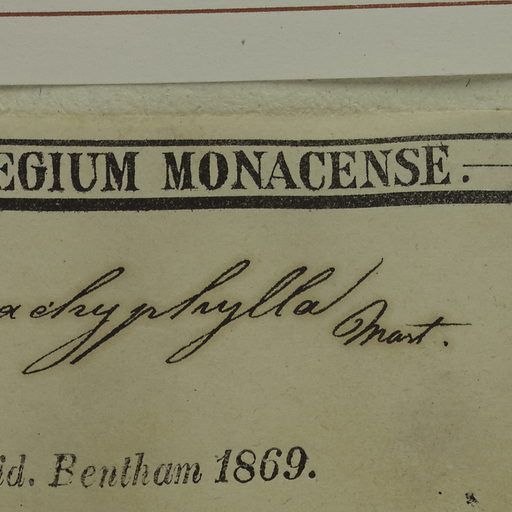 EGIUM MONACENSE.
achyphylla Mart.
id. Bentham 1869.